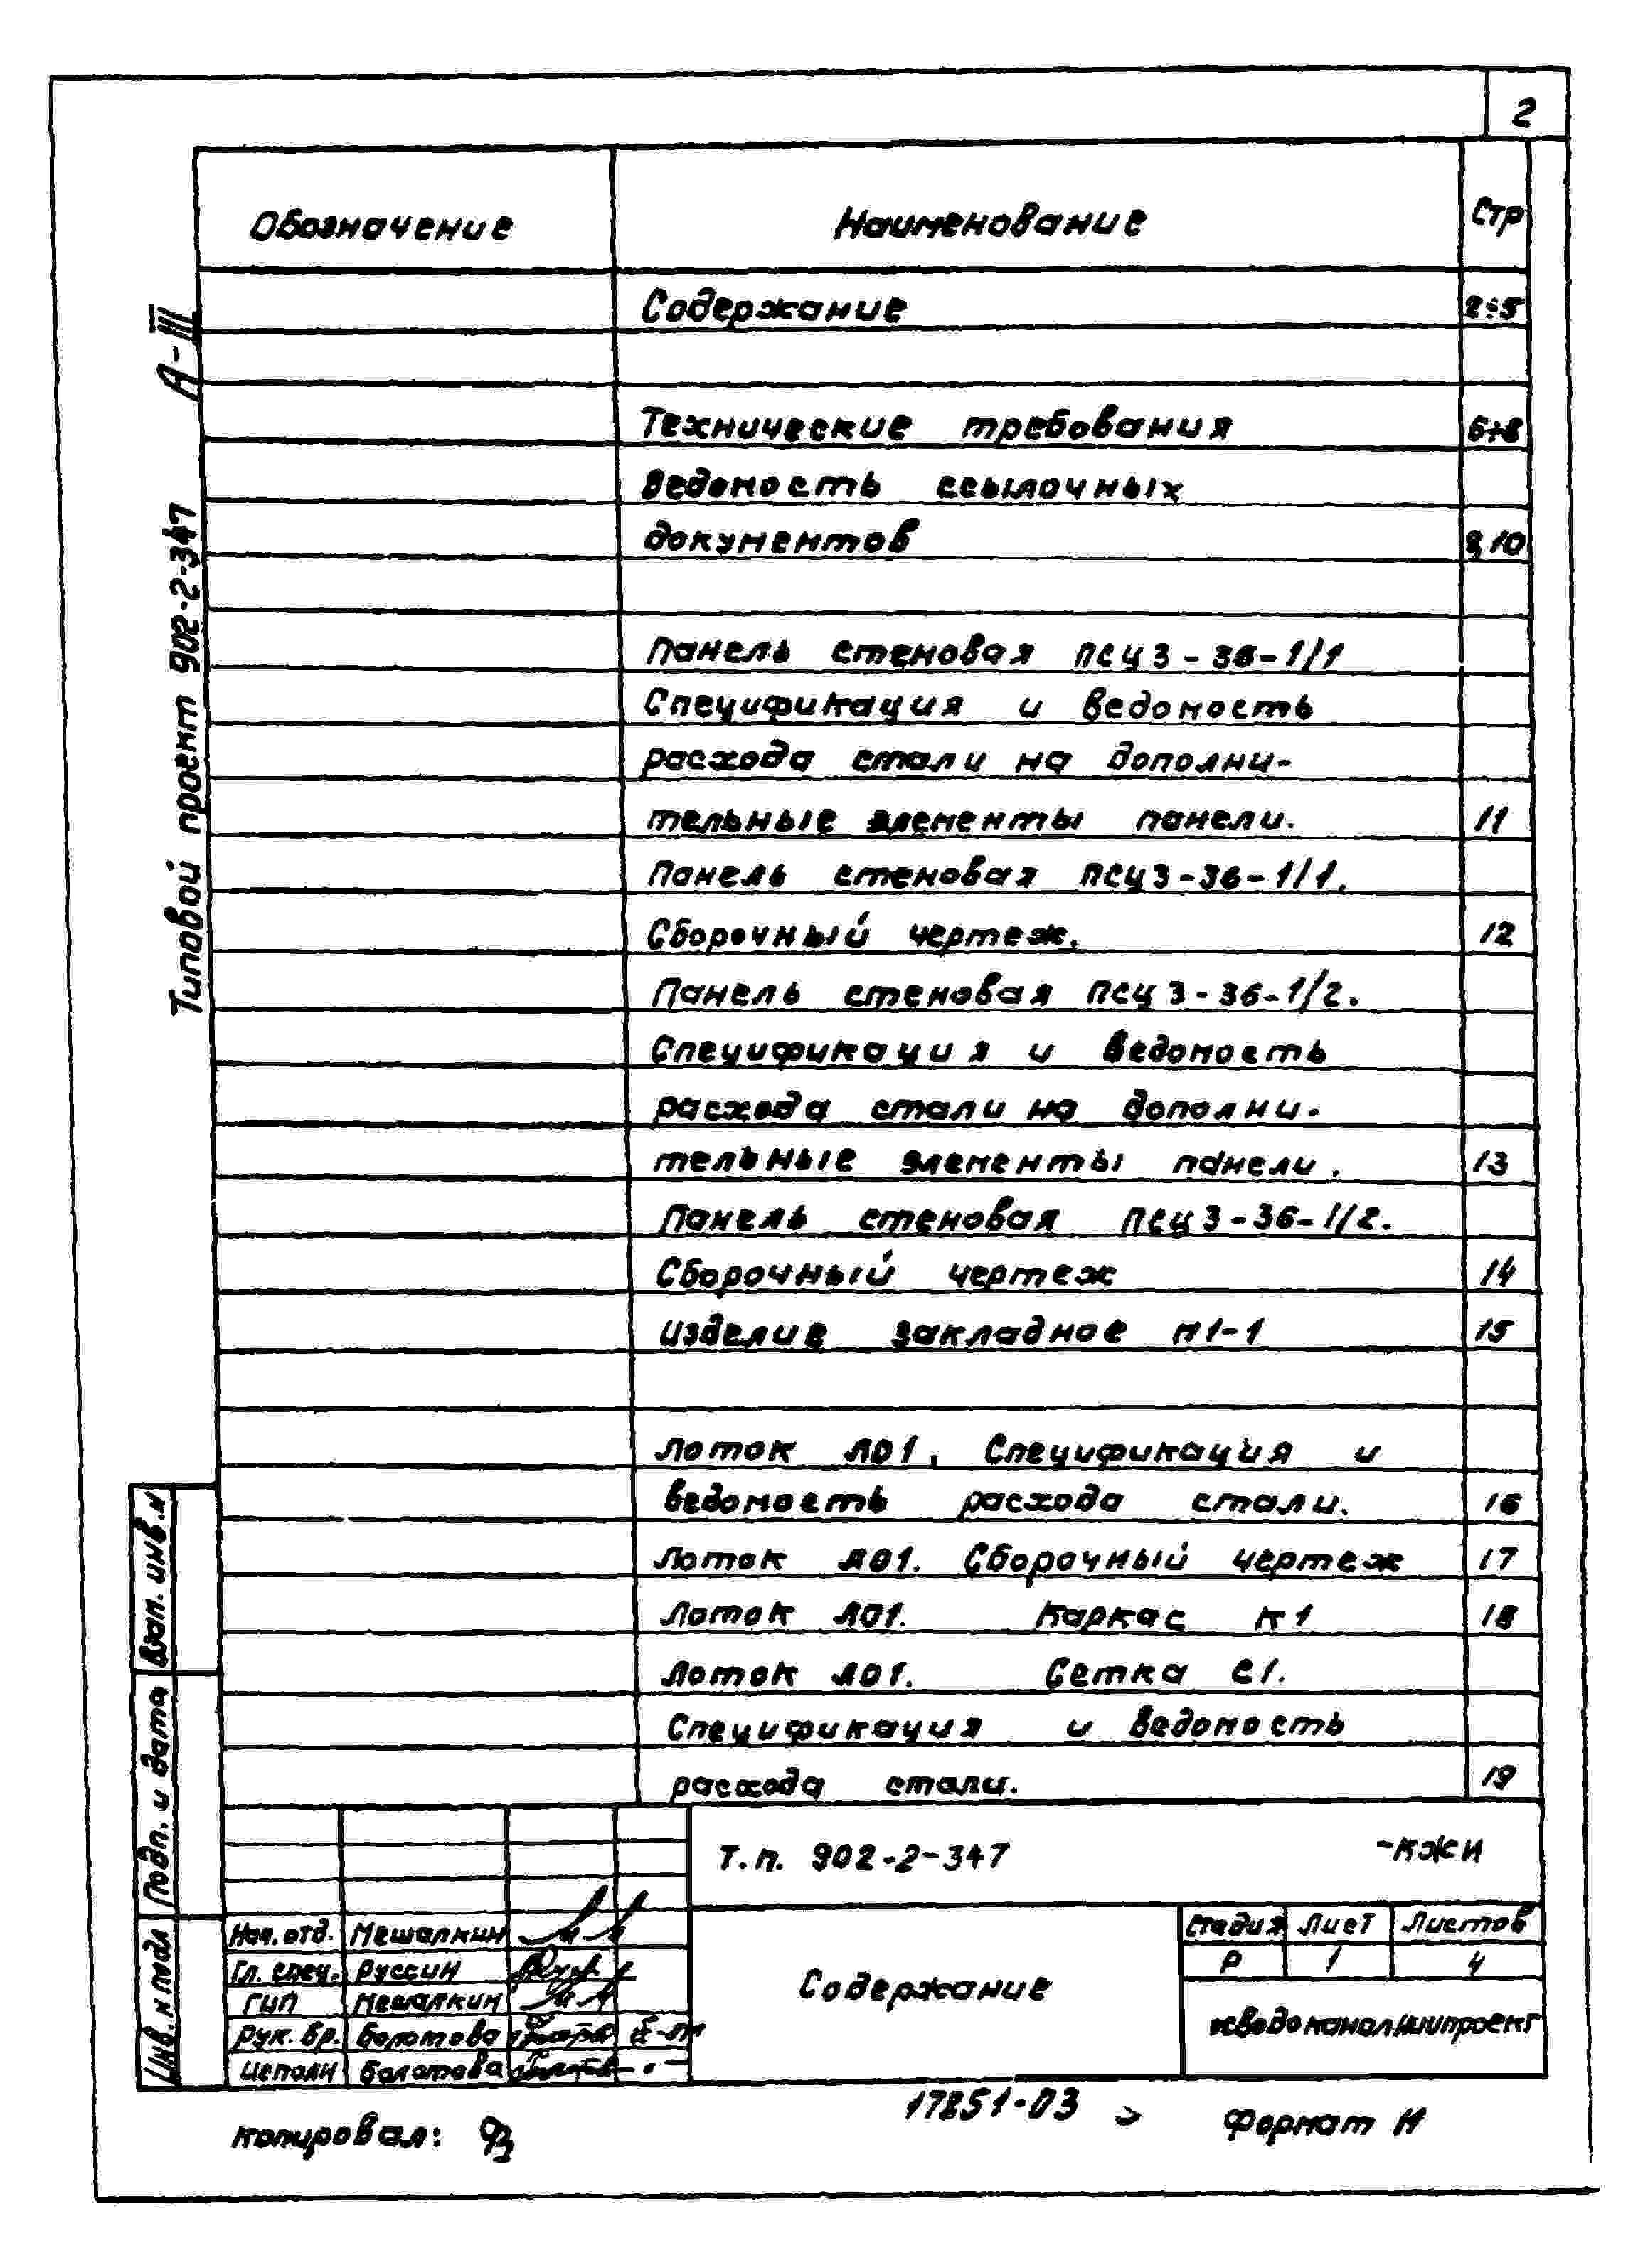 2
Обозначение Наименование Стр
Содержание 2÷5
Технические требования 6÷8
Ведомость ссылочных
документов 9,10
Панель стеновая ПСЦ3-36-1/1
Спецификация и ведомость
расхода стали на дополни-
тельные элементы панели. 11
Панель стеновая ПСЦ3-36-1/1.
Сборочный чертеж. 12
Панель стеновая ПСЦ3-36-1/2.
Спецификация и ведомость
расхода стали на дополни-
тельные элементы панели. 13
Панель стеновая ПСЦ3-36-1/2.
Сборочный чертеж 14
Изделие закладное М1-1 15
Лоток ЛО1. Спецификация и
ведомость расхода стали. 16
Лоток ЛО1. Сборочный чертеж 17
Лоток ЛО1. Каркас К1 18
Лоток ЛО1. Сетка С1.
Спецификация и ведомость
расхода стали. 19
Типовой проект 902-2-347 А-III
Взам. инв. N
Подп. и дата
Инв. N подл
Т.п. 902-2-347 -КЖИ
Нач. отд. Мешалкин
Гл. спец. Руссин
ГИП Мешалкин
Рук. бр. Болотова
Исполн Болотова
Содержание
Стадия Лист Листов
Р 1 4
17851-03
Копировал:
Формат